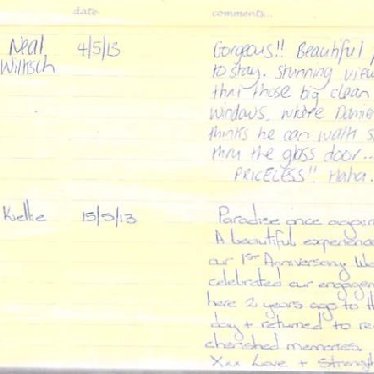 date comments...
Neal 4/5/13 Gorgeous!! Beautiful
Wiltsch to stay. Stunning view
that those big clean
windows, where Danie
thinks he can walk s
thru the glass door...
PRICELESS!! Haha.
15/5/13 Paradise once again
A beautiful experience
our 1st Anniversary. We
celebrated our engagem
here 2 years ago to th
day + returned to re
cherished memories.
Xxx Love + Strength